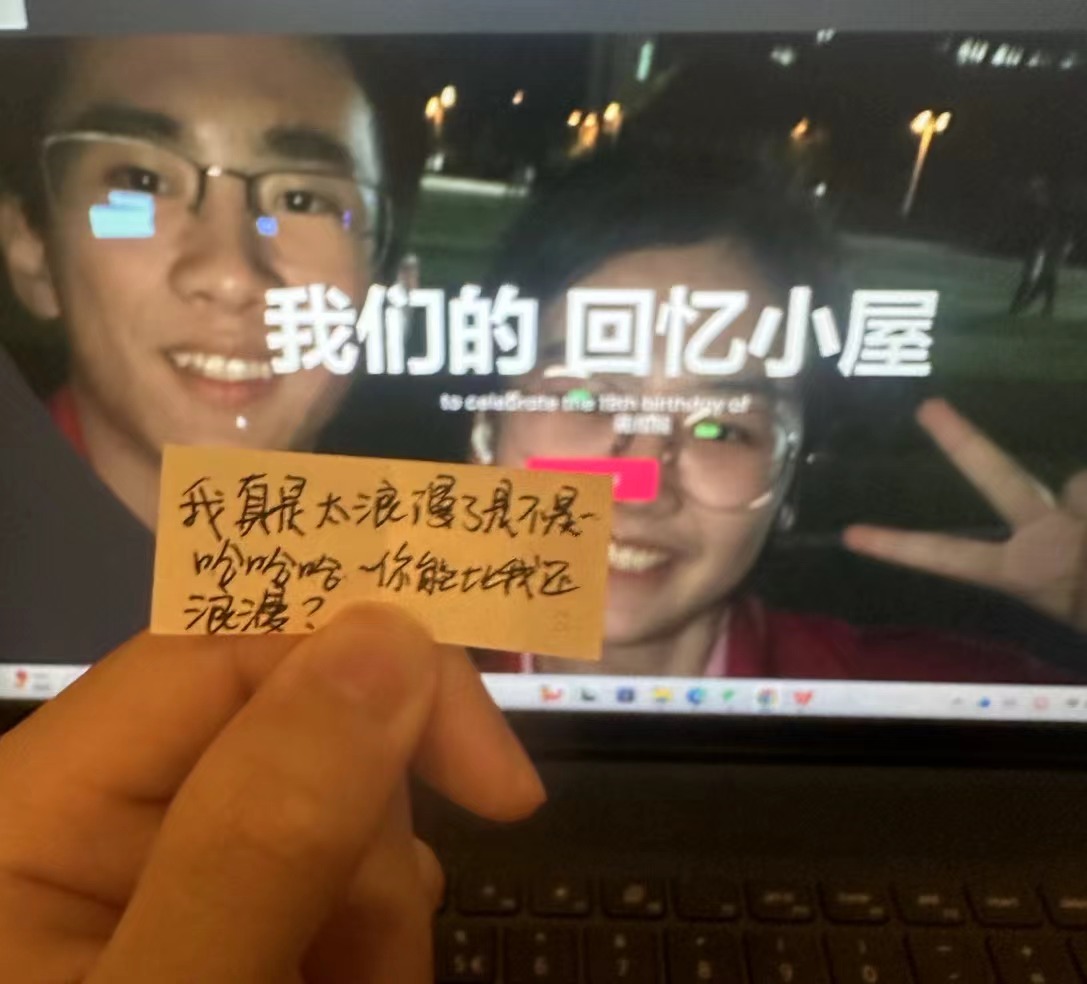 我们的 回忆小屋
to celebrate the 19th birthday of
我真是太浪漫了是不是
哈哈哈 你能比我还
浪漫?